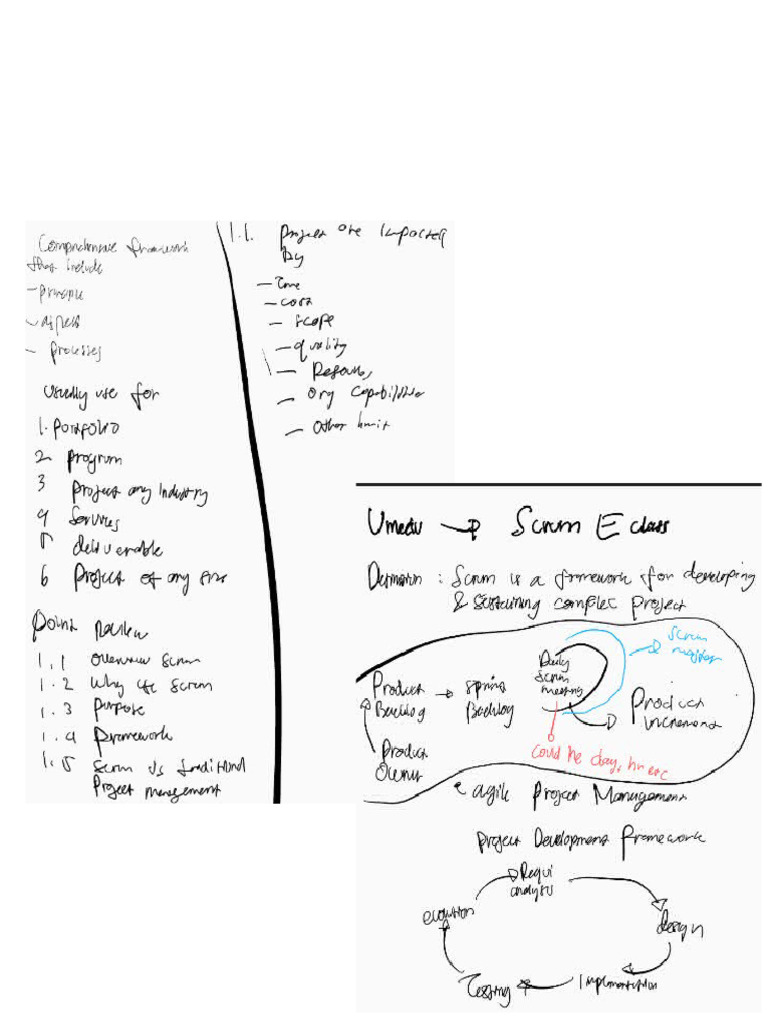 Comprehensive framework
that include
- principle
- aspect
- processes
Usually use for
1. Portfolio
2 program
3 Project any industry
4 Services
5 deliverable
6 Project of any size
Point Review
1.1 Overview scrum
1.2 Why use Scrum
1.3 Purpose
1.4 Framework
1.5 Scrum Vs traditional
Project management
1.1. Project are impacted
by
- Time
- cost
- scope
- quality
- Resources
- Org Capabilities
- Other limit
Umedu → Scrum E class
Definition : Scrum is a framework for developing
& sustaining complex project
Product
Backlog
Product
Owner
Spring
Backlog
Daily
Scrum
meeting
Scrum
Product
increment
Could be day,
agile Project Management
Project Development Framework
Requi
analysis
design
Implementation
Testing
evolution